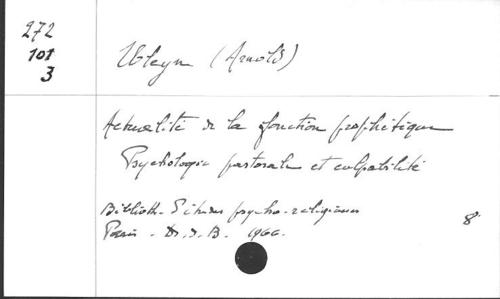 272
101
3
Uleyn (Arnold)
Actualité de la fonction prophétique
Psychologie pastorale et culpabilité
Biblioth. d'études psycho-religieuses
Paris - D.d.B. 1966.
8°